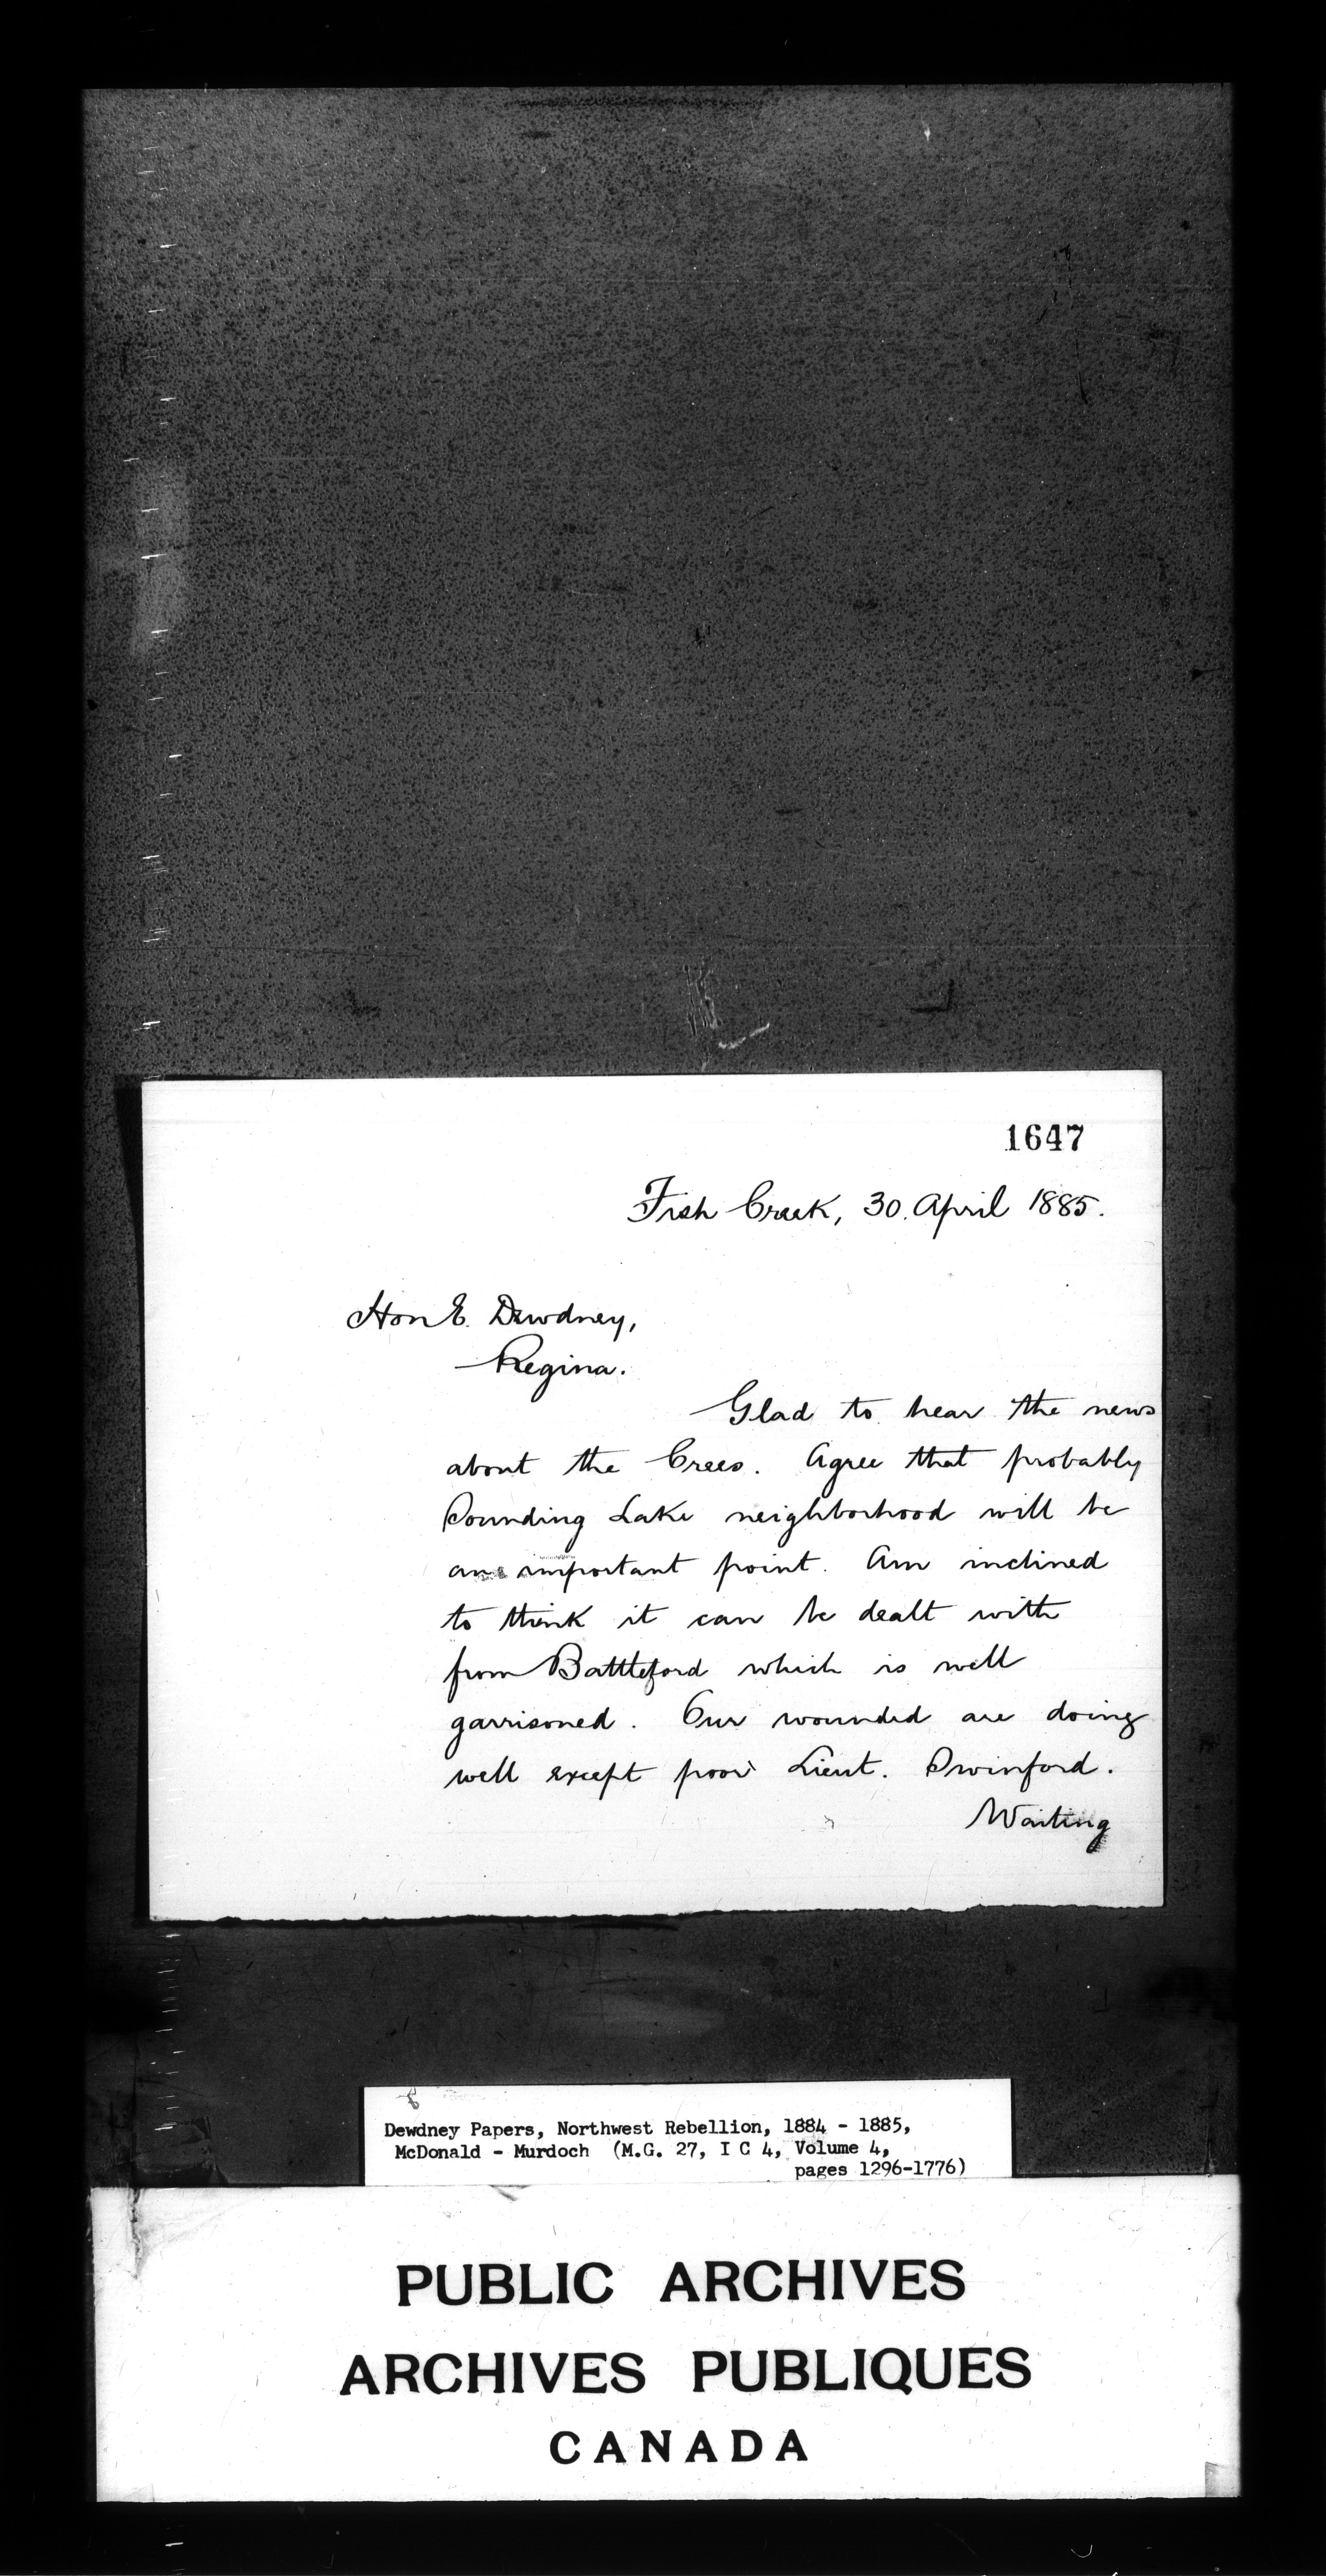 1647
Fish Creek, 30. April 1885.
Hon E. Dewdney,
Regina.
Glad to hear the news
about the Crees. Agree that probably
Sounding Lake neighborhood will be
an important point. Am inclined
to think it can be dealt with
from Battleford which is well
garrisoned. Our wounded are doing
well except poor Lieut. Swinford.
Waiting
Dewdney Papers, Northwest Rebellion, 1884 - 1885,
McDonald - Murdoch (M.G. 27, I C 4, Volume 4,
pages 1296-1776)
PUBLIC ARCHIVES
ARCHIVES PUBLIQUES
CANADA